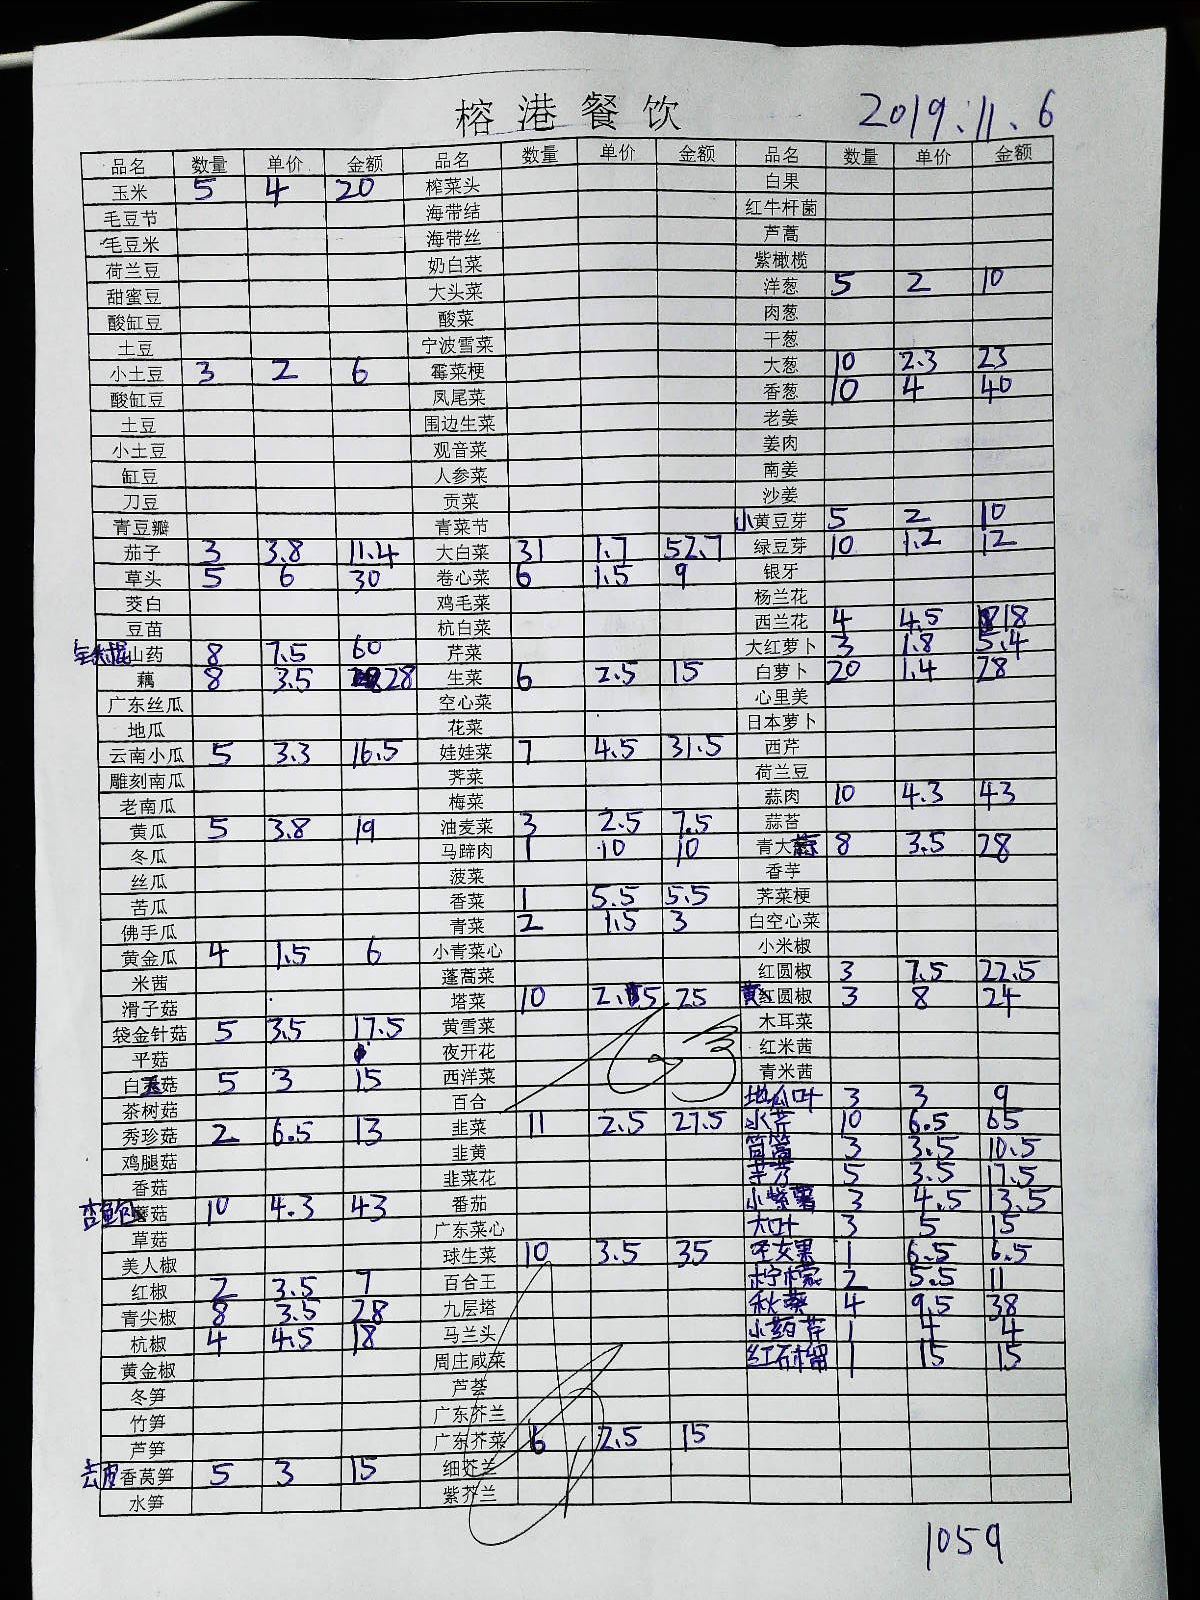 榕港餐饮 2019.11.6
品名 数量 单价 金额 品名 数量 单价 金额 品名 数量 单价 金额
玉米 5 4 20 榨菜头 白果
毛豆节 海带结 红牛杆菌
毛豆米 海带丝 芦蒿
荷兰豆 奶白菜 紫橄榄
甜蜜豆 大头菜 洋葱 5 2 10
酸缸豆 酸菜 肉葱
土豆 宁波雪菜 干葱
小土豆 3 2 6 霉菜梗 大葱 10 2.3 23
酸缸豆 凤尾菜 香葱 10 4 40
土豆 围边生菜 老姜
小土豆 观音菜 姜肉
缸豆 人参菜 南姜
刀豆 贡菜 沙姜
青豆瓣 青菜节 小黄豆芽 5 2 10
茄子 3 3.8 11.4 大白菜 31 1.7 52.7 绿豆芽 10 1.2 12
草头 5 6 30 卷心菜 6 1.5 9 银牙
茭白 鸡毛菜 杨兰花
豆苗 杭白菜 西兰花 4 4.5 18
山药 8 7.5 60 芹菜 大红萝卜 3 1.8 5.4
藕 8 3.5 28 生菜 6 2.5 15 白萝卜 20 1.4 28
广东丝瓜 空心菜 心里美
地瓜 花菜 日本萝卜
云南小瓜 5 3.3 16.5 娃娃菜 7 4.5 31.5 西芹
雕刻南瓜 荠菜 荷兰豆
老南瓜 梅菜 蒜肉 10 4.3 43
黄瓜 5 3.8 19 油麦菜 3 2.5 7.5 蒜苔
冬瓜 马蹄肉 1 10 10 青大蒜 8 3.5 28
丝瓜 菠菜 香芋
苦瓜 香菜 1 5.5 5.5 荠菜梗
佛手瓜 青菜 2 1.5 3 白空心菜
黄金瓜 4 1.5 6 小青菜心 小米椒
米茜 蓬蒿菜 红圆椒 3 7.5 22.5
滑子菇 塔菜 10 2.5 25 黄圆椒 3 8 24
袋金针菇 5 3.5 17.5 黄雪菜 木耳菜
平菇 夜开花 红米茜
白玉菇 5 3 15 西洋菜 青米茜
茶树菇 百合 地瓜叶 3 3 9
秀珍菇 2 6.5 13 韭菜 11 2.5 27.5 水芹 10 6.5 65
鸡腿菇 韭黄 茼蒿 3 3.5 10.5
香菇 韭菜花 芋艿 5 3.5 17.5
杏鲍菇 10 4.3 43 番茄 小紫薯 3 4.5 13.5
草菇 广东菜心 大叶 3 5 15
美人椒 球生菜 10 3.5 35 圣女果 1 6.5 6.5
红椒 2 3.5 7 百合王 柠檬 2 5.5 11
青尖椒 8 3.5 28 九层塔 秋葵 4 9.5 38
杭椒 4 4.5 18 马兰头 小药芹 1 4 4
黄金椒 周庄咸菜 红石榴 1 15 15
冬笋 芦荟
竹笋 广东芥兰
芦笋 广东芥菜 6 2.5 15
去皮香莴笋 5 3 15 细芥兰
水笋 紫芥兰
1059